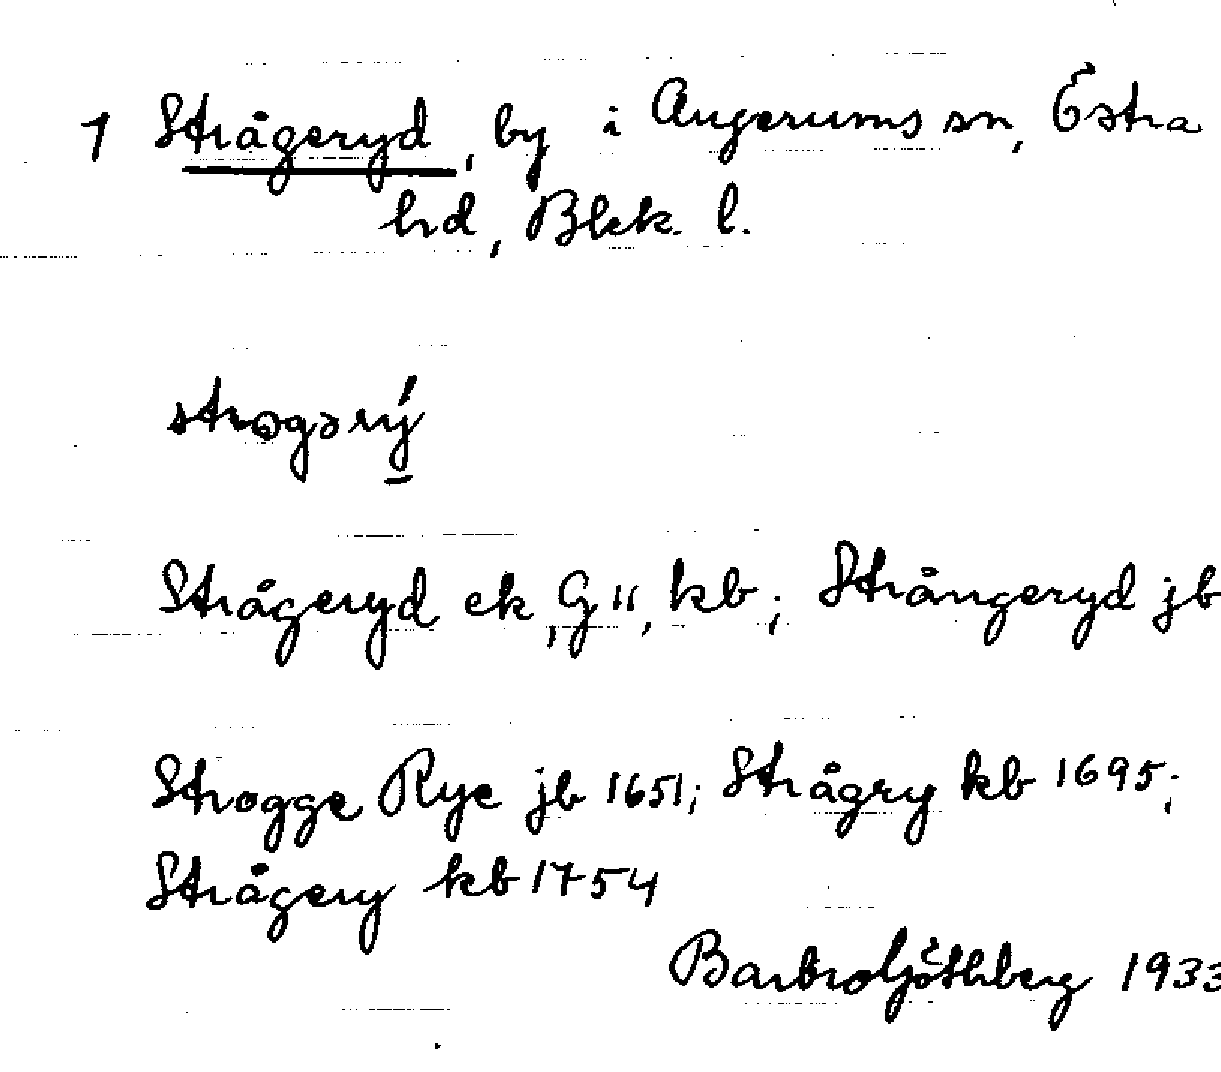 1 Strågeryd, by i Augerums sn, Östra
hd, Blek. l.
strogərý
Strågeryd ek, G11, kb; Strångeryd jb
Strogge Rye jb 1651; Strågry kb 1695;
Strågery kb 1754
Barbro Göthberg 1933